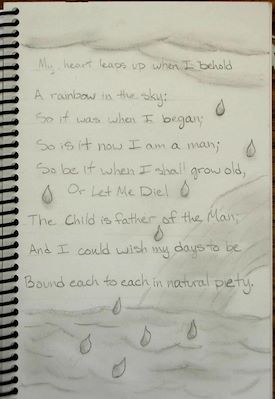 My heart leaps up when I behold
A rainbow in the sky:
So it was when I began;
So is it now I am a man;
So be it when I shall grow old,
Or Let Me Die!
The Child is father of the Man;
And I could wish my days to be
Bound each to each in natural piety.